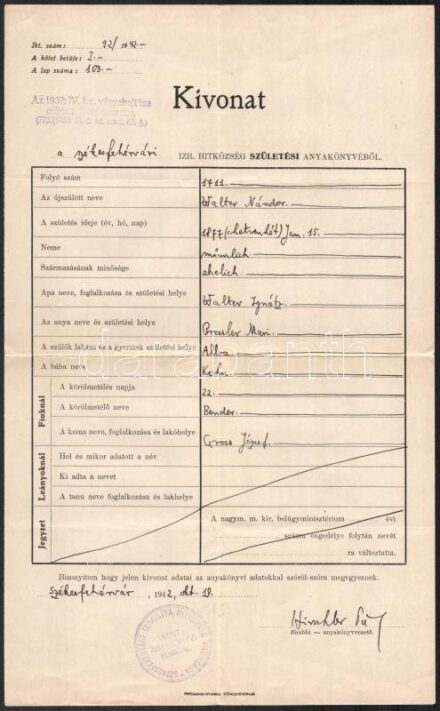 Ikt. szám: 92/1942.-
A kötet betüje: I.-
A lap száma: 103.-
Az 1939: IV. t.-c. végrehajtása
Kivonat
a székesfehérvári IZR. HITKÖZSÉG SZÜLETÉSI ANYAKÖNYVÉBŐL.
Folyó szám 1711.
Az újszülött neve Walter Nándor.
A születés ideje (év, hó, nap) 1877 (hetvenhét) Jan. 15.
Neme männlich
Származásának minősége ehelich.
Apa neve, foglalkozása és születési helye Walter Ignátz.
Az anya neve és születési helye Pressler Mari.
A szülők lakása és a gyermek születési helye Adba.
A bába neve Kohn.
Fiuknál
A körülmetélés napja 22.
A körülmetélő neve Bender.
A koma neve, foglalkozása és lakóhelye Grosz József.
Leányoknál
Hol és mikor adatott a név
Ki adta a nevet
A tanu neve foglalkozása és lakhelye
Jegyzet
A nagym. m. kir. belügyminisztérium évi
szám engedélye folytán nevét
ra változtatta.
Bizonyitom hogy jelen kivonat adatai az anyakönyvi adatokkal szóról-szóra megegyeznek.
Székesfehérvár, 1942, okt. 19.
Hirschler
főrabbi — anyakönyvvezető.
darabanth